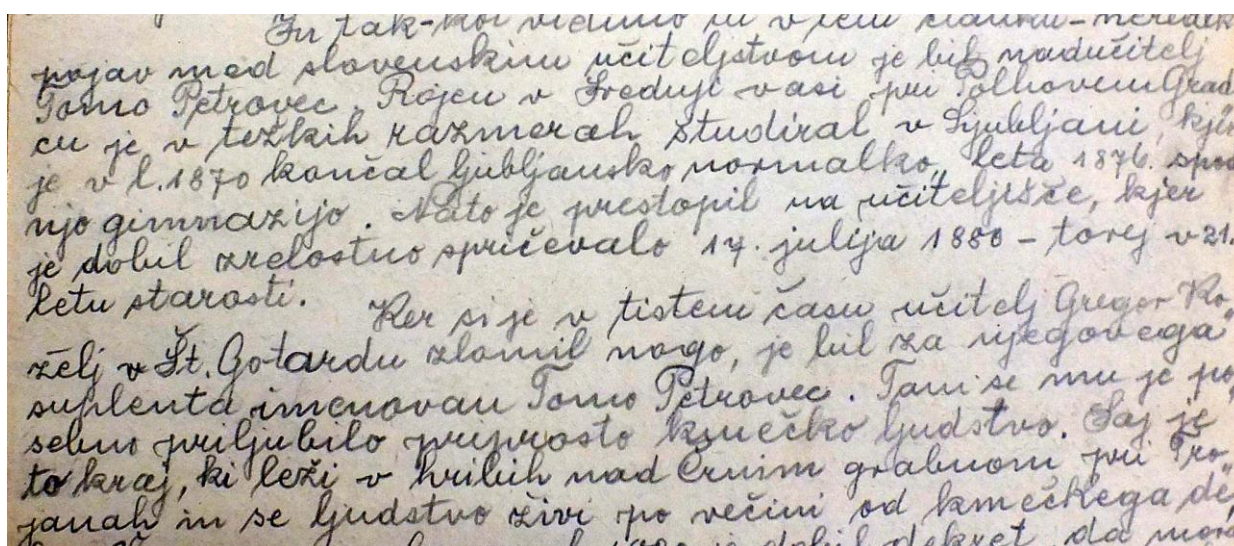 In tak-kot vidimo iz v tem članku-
pojav med slovenskim učiteljstvom je bil nadučitelj
Tomo Petrovec. Rojen v Srednji vasi pri Polhovem Grad
cu je v težkih razmerah študiral v Ljubljani, kjer
je v l. 1870 končal ljubljansko normalko, leta 1876. spod
njo gimnazijo. Nato je prestopil na učiteljišče, kjer
je dobil zrelostno spričevalo 17. julija 1880 - torej v 21.
letu starosti.
Ker si je v tistem času učitelj Gregor Ko„
želj v Št. Gotardu zlomil nogo, je bil za njegovega
suplenta imenovan Tomo Petrovec. Tam se mu je po„
sebno priljubilo priprosto kmečko ljudstvo. Saj je
to kraj, ki leži v hribih nad Črnim grabnom pri Tro„
janah in se ljudstvo živi po večini od kmečkega de„
je dobil dekret, da mora